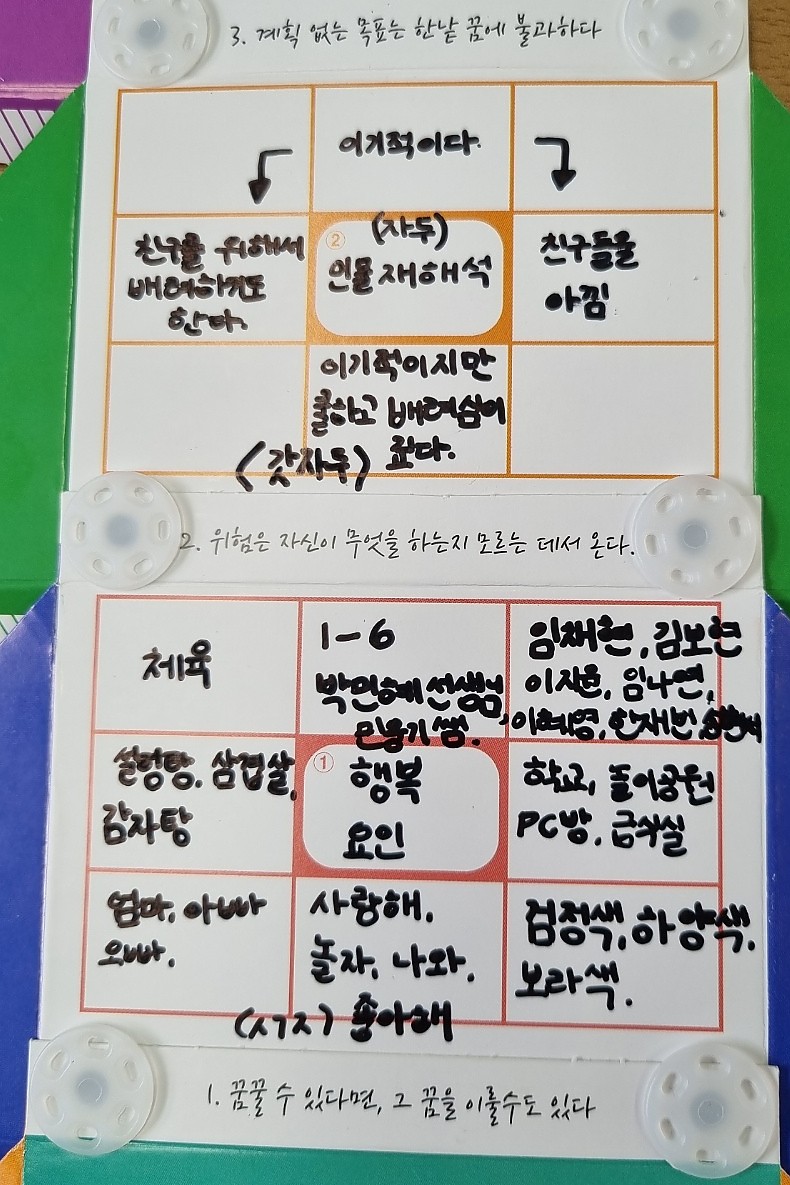 3. 계획 없는 목표는 한낱 꿈에 불과하다
이기적이다.
친구를 위해서
배려하기도
한다.
②
(자두)
인물 재해석
친구들을
아낌
이기적이지만
쿨하고 배려심이
있다.
(갓자두)
2. 위험은 자신이 무엇을 하는지 모르는 데서 온다.
체육
1-6
박민혜 선생님,
민웅기쌤.
임채현, 김보현
이지윤, 임나연,
이혜영, 한채빈,
설렁탕, 삼겹살,
감자탕
①
행복
요인
학교, 놀이공원
PC방, 급식실
엄마, 아빠
오빠.
사랑해,
놀자, 나와,
좋아해
검정색, 하양색,
보라색.
1. 꿈꿀 수 있다면, 그 꿈을 이룰수도 있다